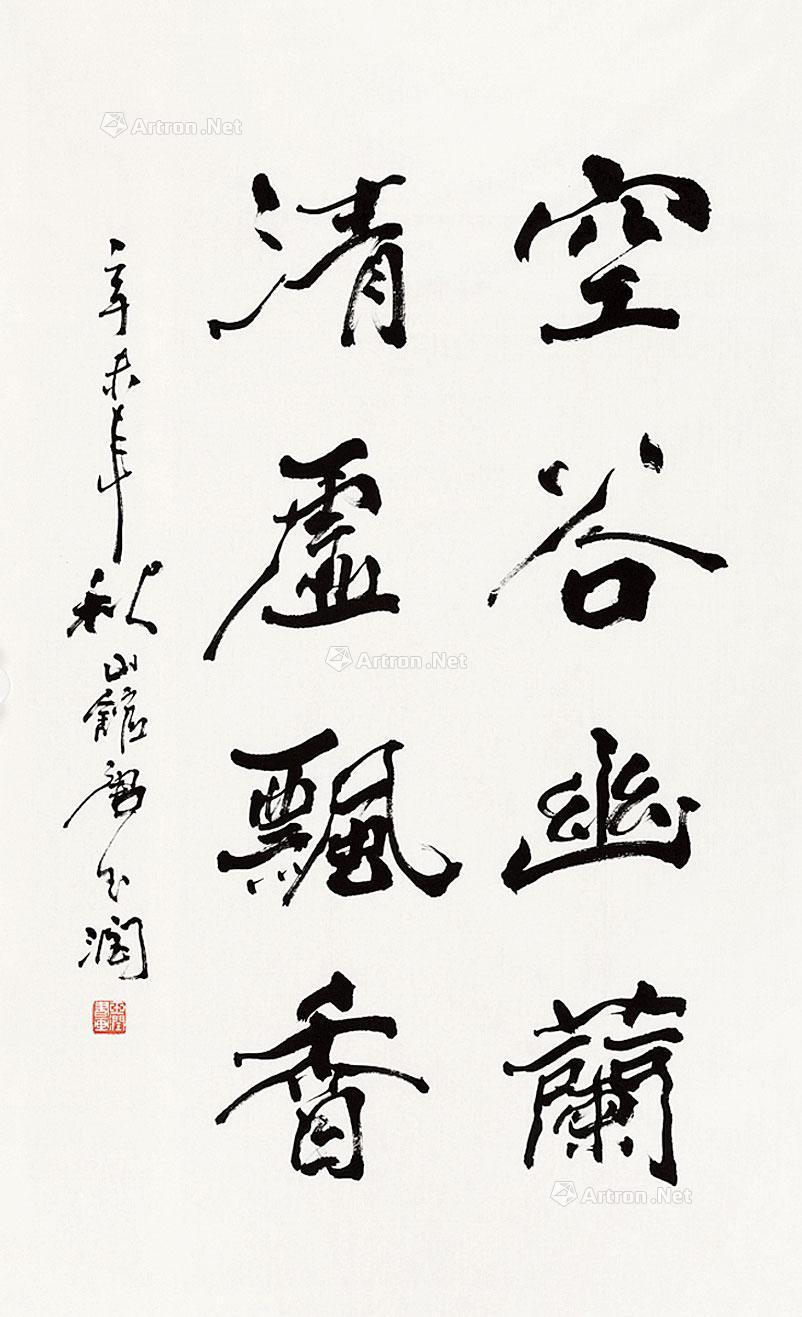 空谷幽蘭
清虛飄香
辛未年秋山館唐玉潤
Artron.Net
Artron.Net
Artron.Net